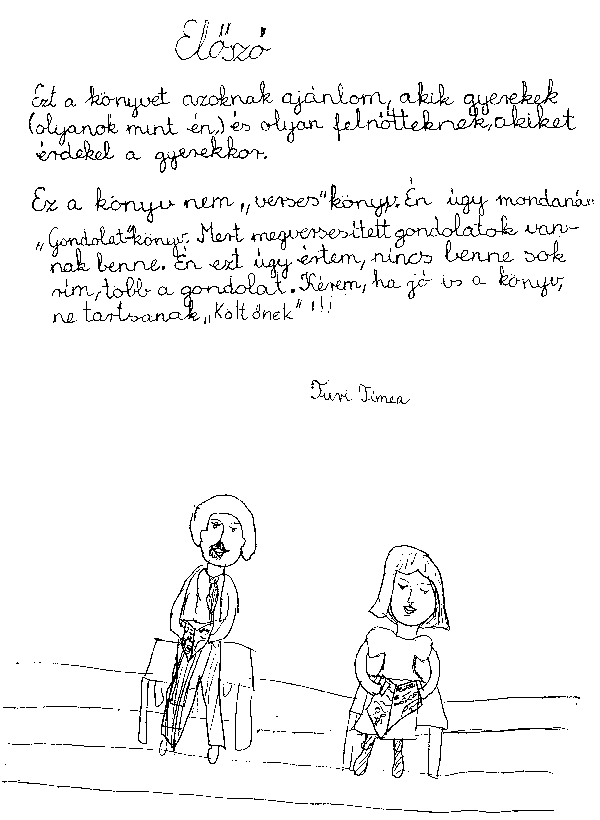 Előszó
Ezt a könyvet azoknak ajánlom, akik gyerekek
(olyanok mint én,) és olyan felnőtteknek, akiket
érdekel a gyerekkor.
Ez a könyv nem „verses" könyv. Én úgy mondanám
„Gondolat"-könyv. Mert megversesített gondolatok van-
nak benne. Én ezt úgy értem, nincs benne sok
rím, több a gondolat. Kérem, ha jó is a könyv,
ne tartsanak „Költőnek" !!!
Turi Tímea